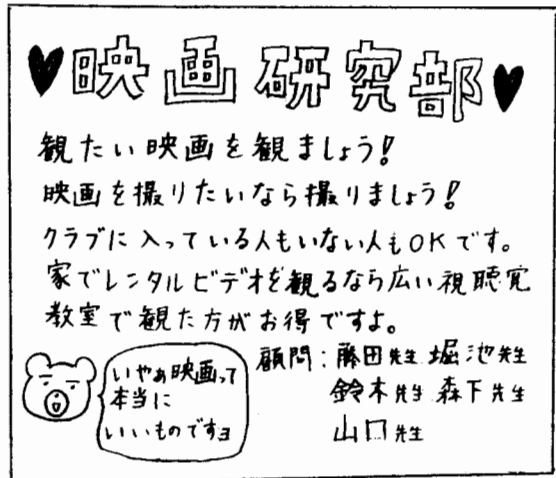 ♥映画研究部♥
観たい映画を観ましょう!
映画を撮りたいなら撮りましょう!
クラブに入っている人もいない人もOKです。
家でレンタルビデオを観るなら広い視聴覚
教室で観た方がお得ですよ。
顧問:藤田先生 堀池先生
鈴木先生 森下先生
山口先生
いやぁ映画って
本当に
いいものですョ